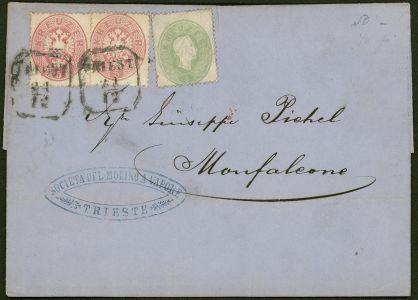 KREUZER KREUZER
TRIEST
Giuseppe Pichel
Monfalcone
SOCIETÀ DEL MOLINO A VAPORE
TRIESTE